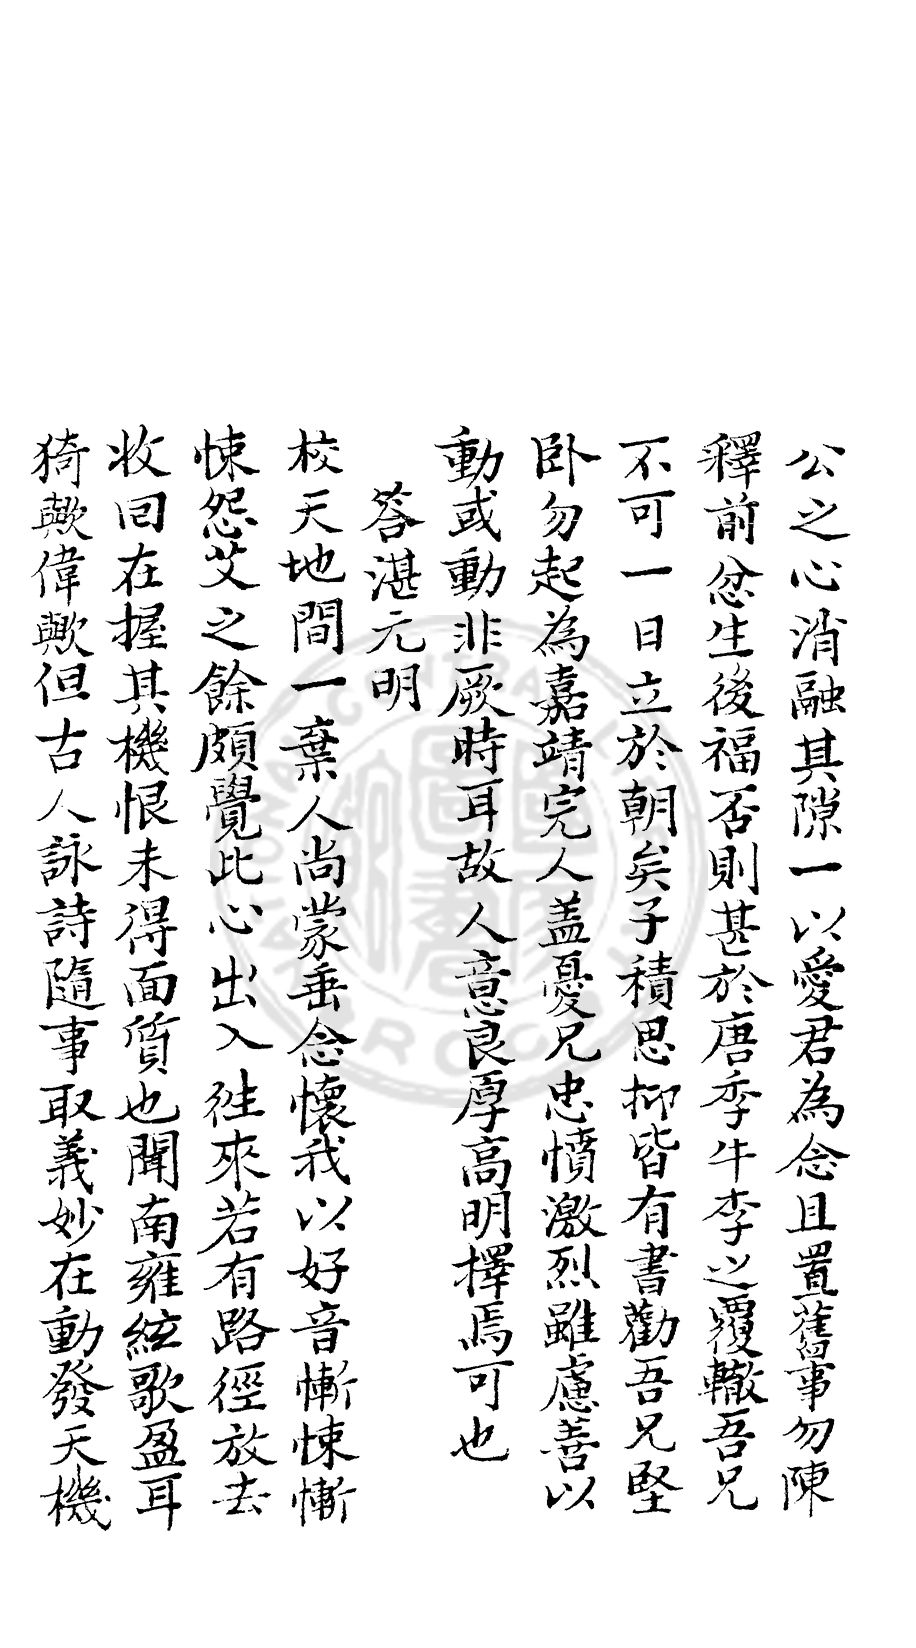 公之心消融其隙一以愛君為念且置舊事勿陳
釋前忿生後福否則甚於唐季牛李之覆轍吾兄
不可一日立於朝矣子積思抑皆有書勸吾兄堅
卧勿起為嘉靖完人盖憂兄忠憤激烈雖慮善以
動或動非厥時耳故人意良厚高明擇焉可也
答湛元明
校天地間一棄人尚蒙垂念懷我以好音慚悚慚
悚怨艾之餘頗覺此心出入徃來若有路徑放去
收回在握其機恨未得面質也聞南雍絃歌盈耳
猗歟偉歟但古人詠詩隨事取義妙在動發天機